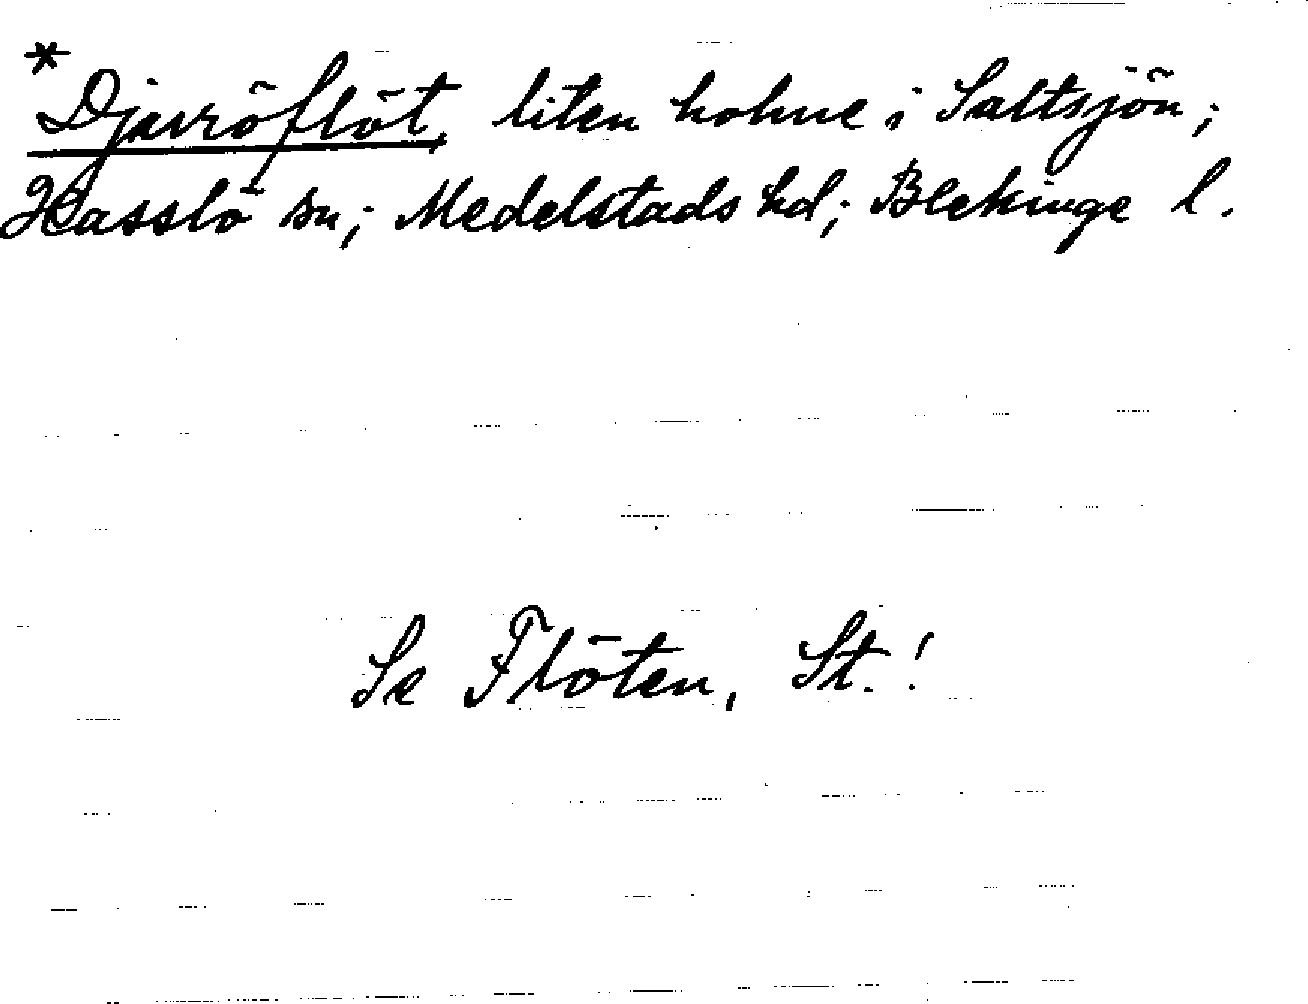 *Djurröflöt, liten holme i Saltsjön;
Hasslö sn; Medelstads hd; Blekinge l.
Se Flöten, St.!